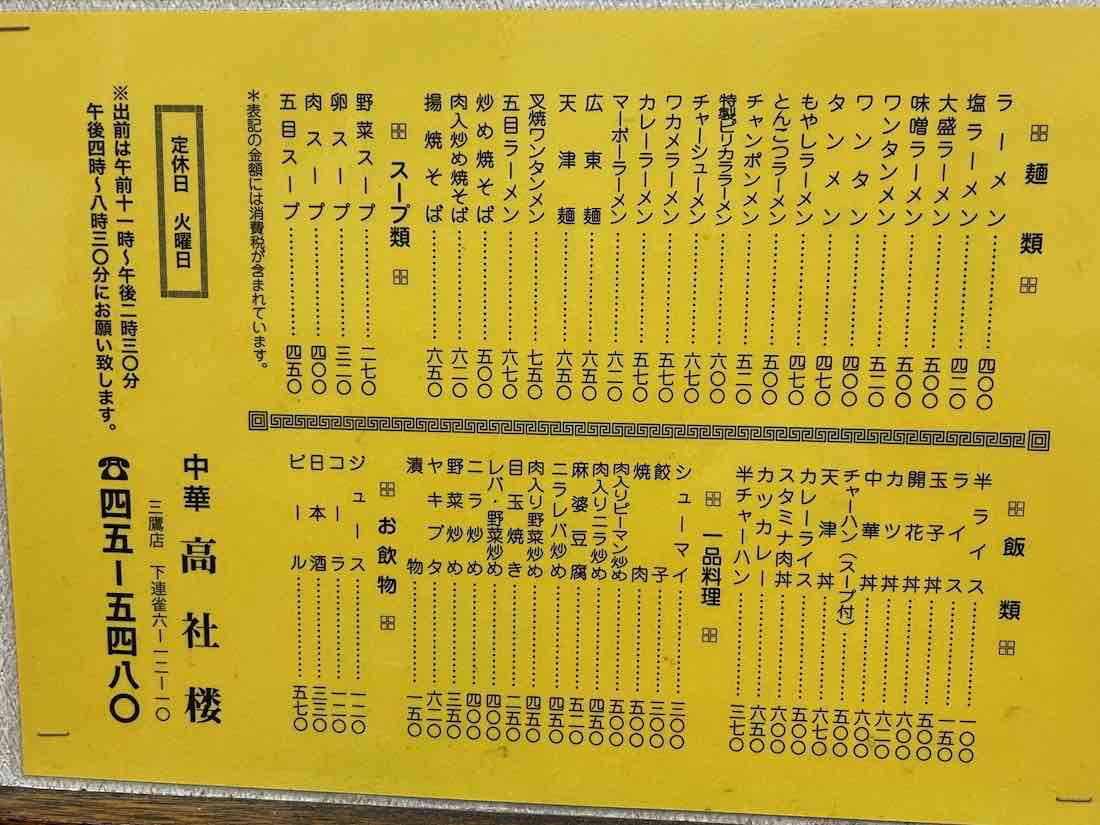 麺類
ラーメン……四〇〇
塩ラーメン……四二〇
大盛ラーメン……五〇〇
味噌ラーメン……五〇〇
ワンタンメン……五二〇
ワンタン……四〇〇
タンメン……四七〇
もやしラーメン……四七〇
とんこつラーメン……五〇〇
チャンポンメン……五二〇
特製ピリカララーメン……六〇〇
チャーシューメン……六七〇
ワカメラーメン……五七〇
カレーラーメン……五七〇
マーボーラーメン……六二〇
広東麺……六五〇
天津麺……六五〇
叉焼ワンタンメン……七五〇
五目ラーメン……六七〇
炒め焼そば……五〇〇
肉入炒め焼そば……六二〇
揚焼そば……六五〇
スープ類
野菜スープ……二七〇
卵スープ……三二〇
肉スープ……四〇〇
五目スープ……四五〇
＊表記の金額には消費税が含まれています。
飯類
半ライス……一〇〇
ライス……一五〇
玉子丼……五〇〇
開花丼……六〇〇
カツ丼……六二〇
中華丼……六〇〇
チャーハン（スープ付）……五〇〇
天津丼……六七〇
カレーライス……五〇〇
スタミナ肉丼……六五〇
カツカレー……六五〇
半チャーハン……三七〇
一品料理
シューマイ……三〇〇
餃子……三〇〇
焼肉……五〇〇
肉入りピーマン炒め……五〇〇
肉入りニラ炒め……四五〇
麻婆豆腐……五二〇
ニラレバ炒め……四五〇
肉入り野菜炒め……四五〇
目玉焼き……二五〇
レバ・野菜炒め……四〇〇
ニラ炒め……四〇〇
野菜炒め……三五〇
ヤキブタ……六二〇
漬物……一五〇
お飲物
ジュース……一二〇
コーラ……一二〇
日本酒……三三〇
ビール……五七〇
定休日 火曜日
※出前は午前十一時〜午後二時三〇分
午後四時〜八時三〇分にお願い致します。
中華 高社楼
三鷹店 下連雀六ー一二ー一〇
☎四五ー五四八〇